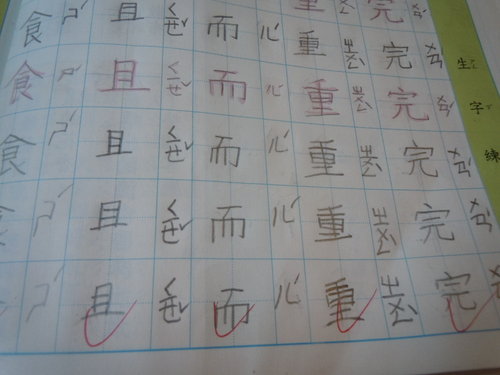 生字練
完完完完完完
ㄨㄢˊ ㄨㄢˊ ㄨㄢˊ ㄨㄢˊ ㄨㄢˊ
重重重重重重
ㄓㄨㄥˋ ㄓㄨㄥˋ ㄓㄨㄥˋ ㄓㄨㄥˋ ㄓㄨㄥˋ
而而而而而
ㄦˊ ㄦˊ ㄦˊ ㄦˊ ㄦˊ
且且且且且
ㄑㄧㄝˇ ㄑㄧㄝˇ ㄑㄧㄝˇ ㄑㄧㄝˇ ㄑㄧㄝˇ
食食食
ㄕˊ ㄕˊ ㄕˊ ㄕˊ ㄕˊ